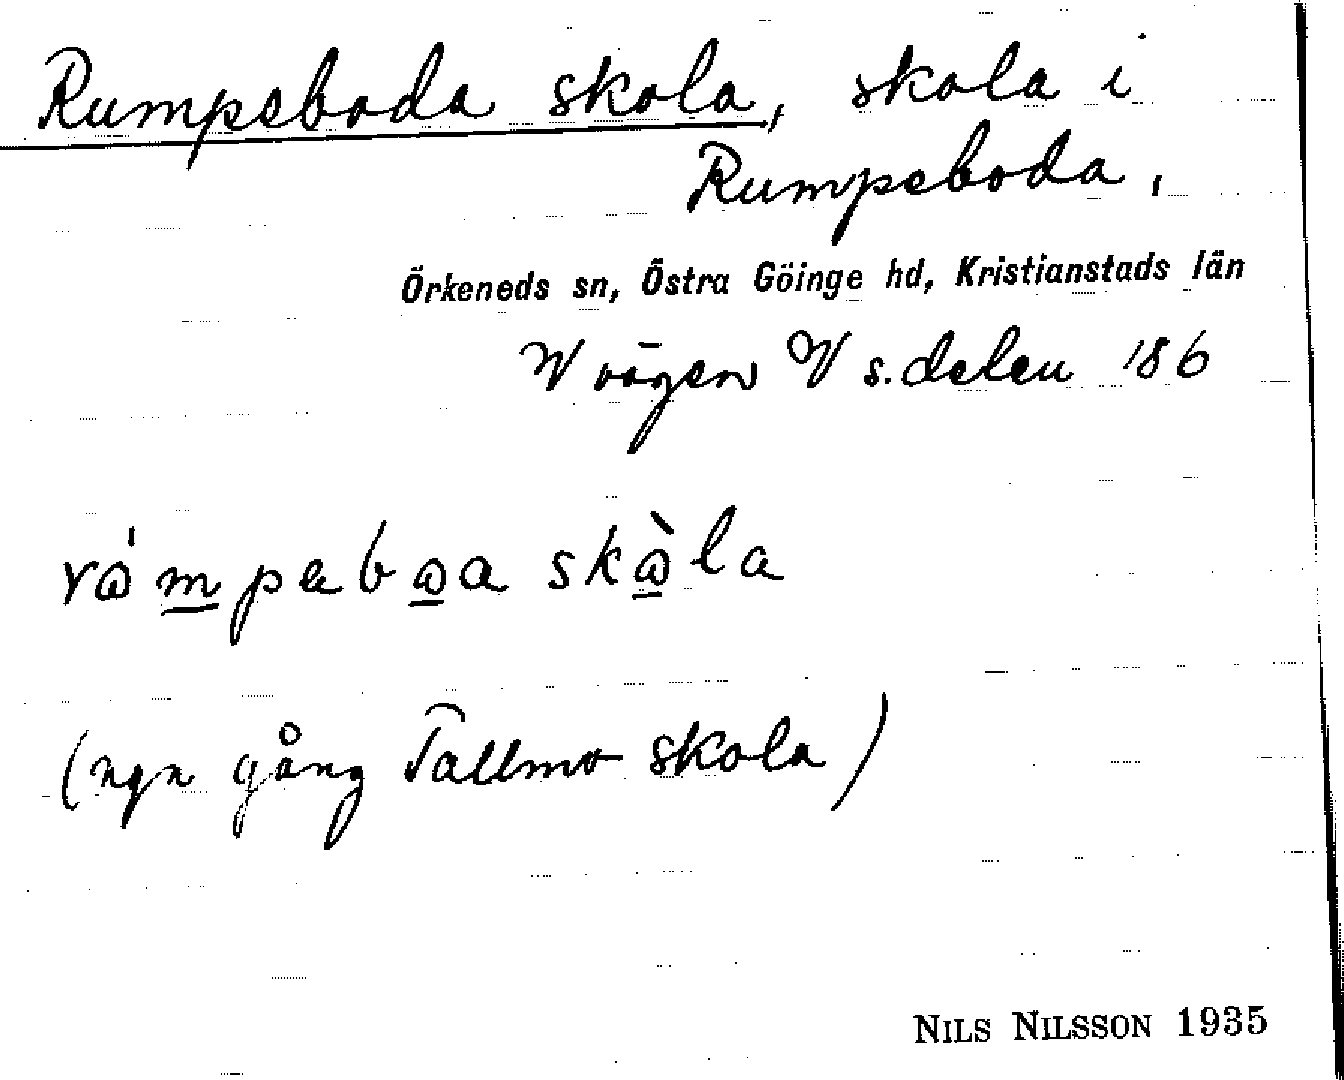 Rumpeboda skola, skola i
Rumpeboda,
Örkeneds sn, Östra Göinge hd, Kristianstads län
W vägen V s. delen 186
(ngn gång Tallmo skola)
NILS NILSSON 1935